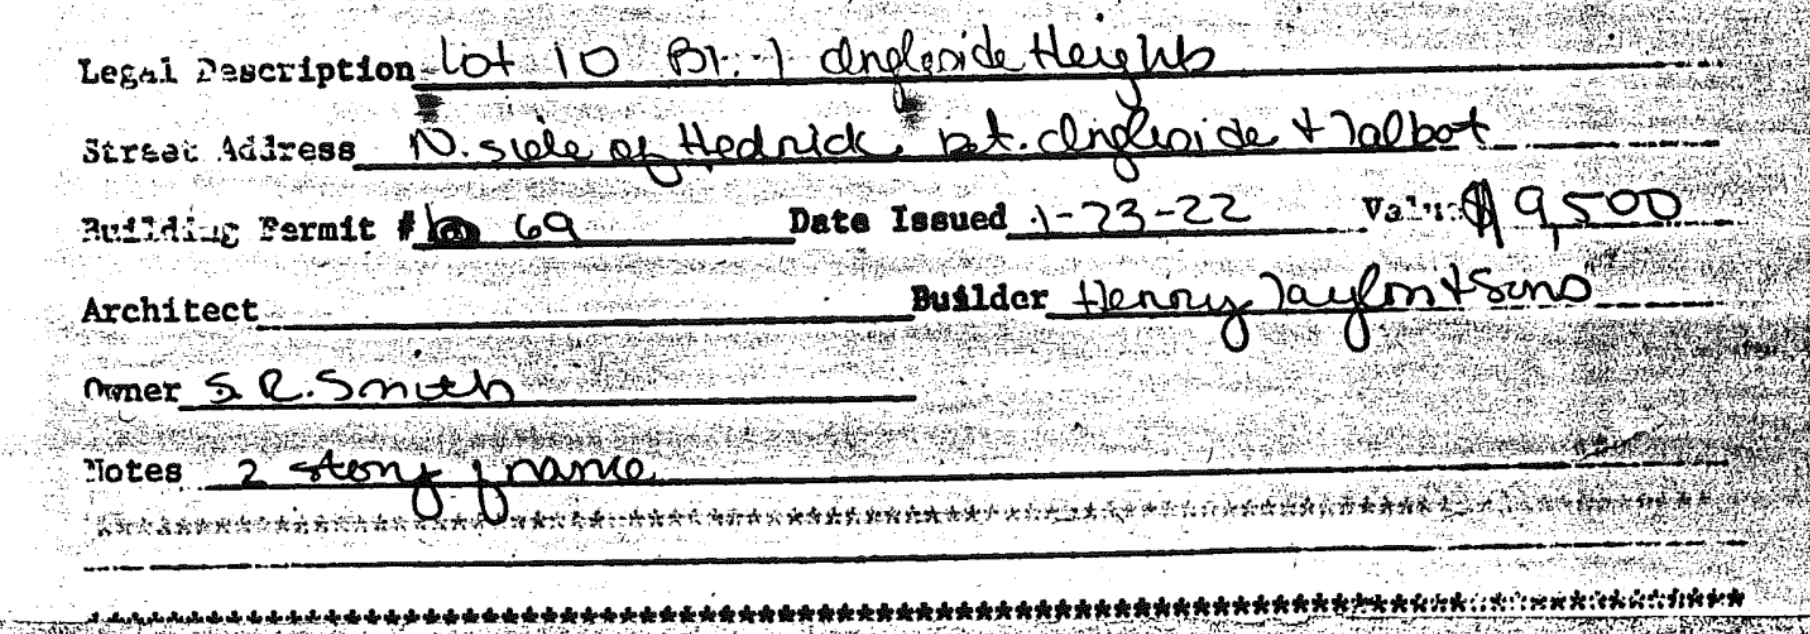 Legal Description Lot 10 Bl. 1 Ingleside Heights
Street Address N. side of Hedrick, bt. Ingleside + Talbot
Building Permit # 69 Date Issued 1-23-22 Value $9,500
Architect Builder Henry Taylor + Sons
Owner S. R. Smith
Notes 2 story frame